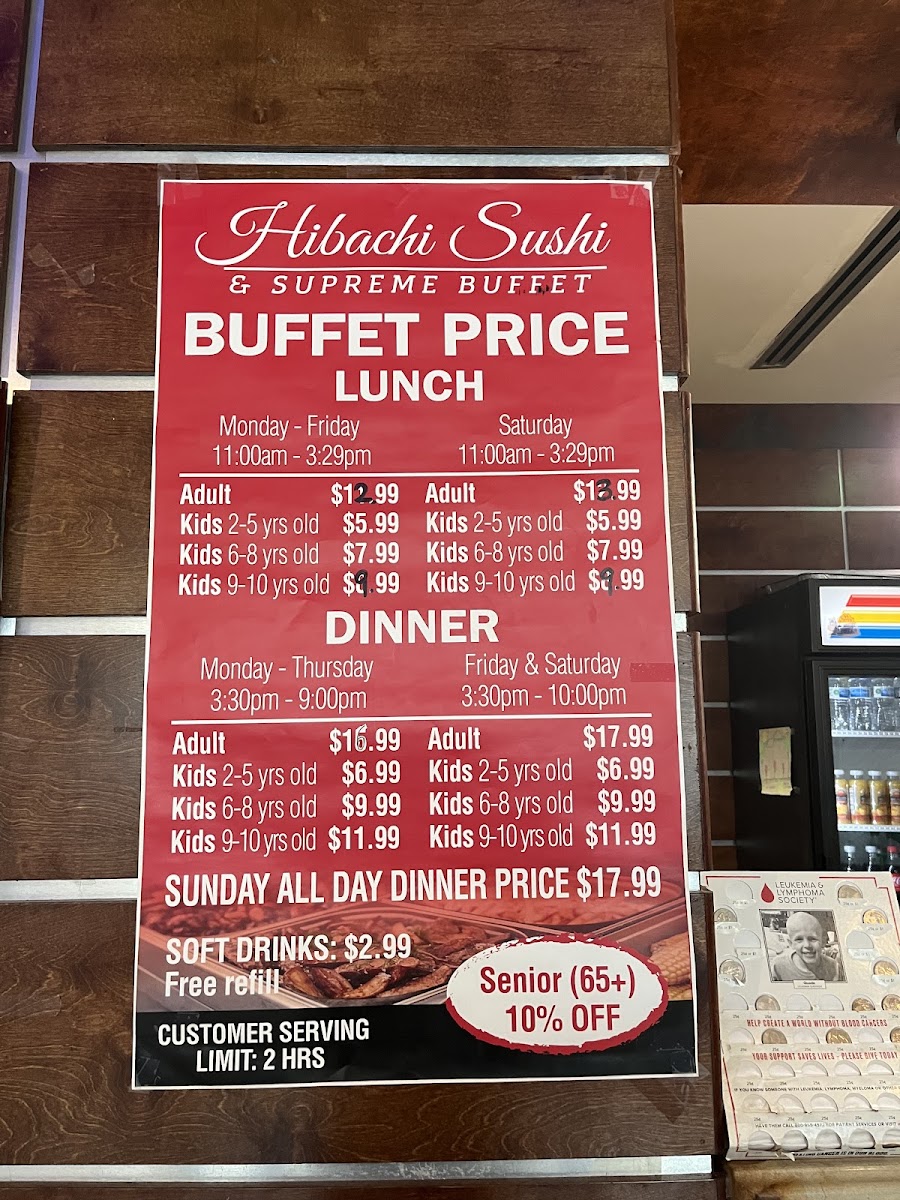 Hibachi Sushi
& SUPREME BUFFET
BUFFET PRICE
LUNCH
Monday - Friday
11:00am - 3:29pm
Adult $12.99
Kids 2-5 yrs old $5.99
Kids 6-8 yrs old $7.99
Kids 9-10 yrs old $9.99
Saturday
11:00am - 3:29pm
Adult $13.99
Kids 2-5 yrs old $5.99
Kids 6-8 yrs old $7.99
Kids 9-10 yrs old $9.99
DINNER
Monday - Thursday
3:30pm - 9:00pm
Adult $16.99
Kids 2-5 yrs old $6.99
Kids 6-8 yrs old $9.99
Kids 9-10 yrs old $11.99
Friday & Saturday
3:30pm - 10:00pm
Adult $17.99
Kids 2-5 yrs old $6.99
Kids 6-8 yrs old $9.99
Kids 9-10 yrs old $11.99
SUNDAY ALL DAY DINNER PRICE $17.99
SOFT DRINKS: $2.99
Free refill
Senior (65+)
10% OFF
CUSTOMER SERVING
LIMIT: 2 HRS
LEUKEMIA &
LYMPHOMA
SOCIETY
HELP CREATE A WORLD WITHOUT BLOOD CANCERS
YOUR SUPPORT SAVES LIVES - PLEASE GIVE TODAY
IF YOU KNOW SOMEONE WITH LEUKEMIA, LYMPHOMA, MYELOMA OR